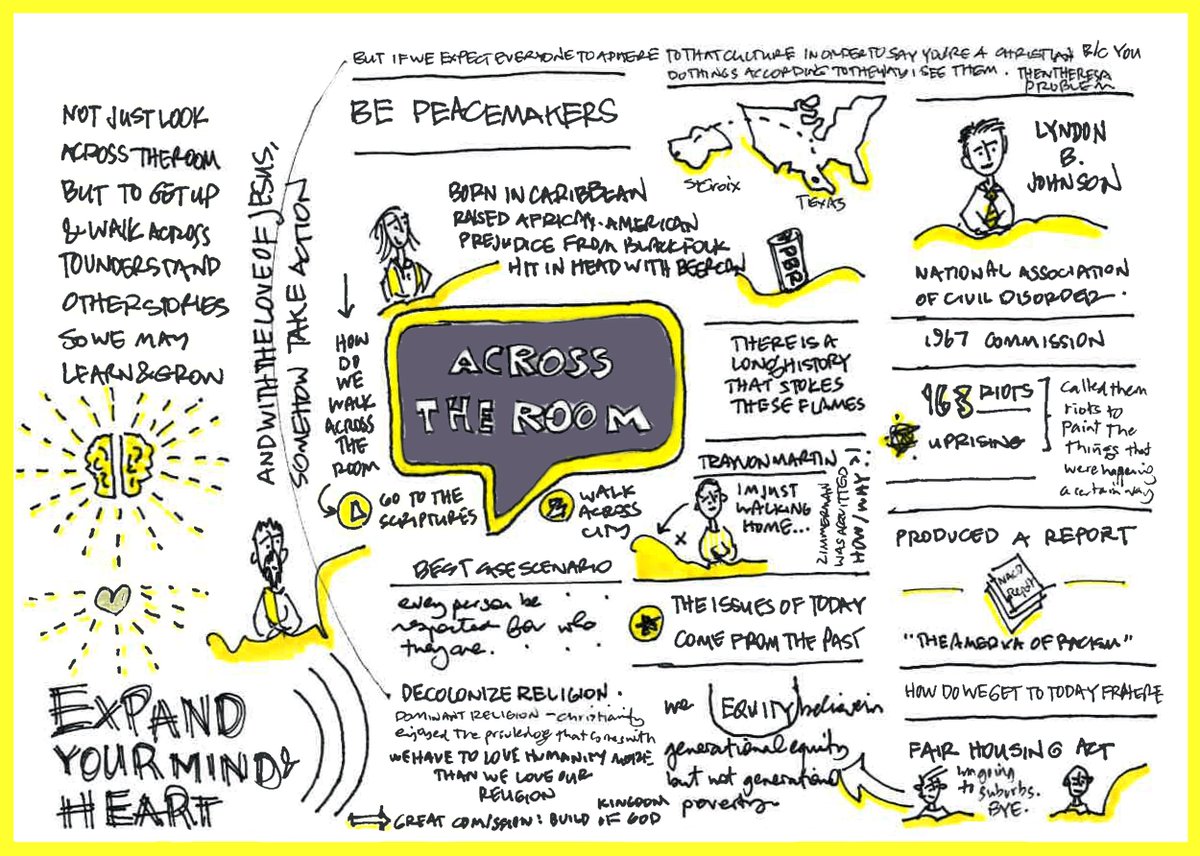 BUT IF WE EXPECT EVERYONE TO ADHERE TO THAT CULTURE IN ORDER TO SAY YOU'RE A CHRISTIAN B/C YOU
DO THINGS ACCORDING TO THE WAY I SEE THEM. THEN THERE'S A
PROBLEM
NOT JUST LOOK
ACROSS THE ROOM
BUT TO GET UP
& WALK ACROSS
TO UNDERSTAND
OTHER STORIES
SO WE MAY
LEARN & GROW
AND WITH THE LOVE OF JESUS,
SOMEHOW TAKE ACTION
EXPAND
YOUR MIND &
HEART
BE PEACEMAKERS
BORN IN CARIBBEAN
RAISED AFRICAN-AMERICAN
PREJUDICE FROM BLACK FOLK
HIT IN HEAD WITH BEER CAN
PBR
St Croix
TEXAS
HOW
DO
WE
WALK
ACROSS
THE
ROOM
ACROSS
THE ROOM
GO TO THE
SCRIPTURES
WALK
ACROSS
CITY
BEST CASE SCENARIO
every person be
respected for who
they are.
DECOLONIZE RELIGION.
DOMINANT RELIGION - christianity
enjoyed the priviledge that comes with
WE HAVE TO LOVE HUMANITY MORE
THAN WE LOVE OUR
RELIGION
KINGDOM
GREAT COMISSION: BUILD OF GOD
THERE IS A
LONG HISTORY
THAT STOKES
THESE FLAMES
TRAYVON MARTIN
I'M JUST
WALKING
HOME...
X
ZIMMERMAN
WAS ACQUITTED
HOW/WHY?!
THE ISSUES OF TODAY
COME FROM THE PAST
we EQUITY believers
generational equity
but not generational
poverty.
LYNDON
B.
JOHNSON
NATIONAL ASSOCIATION
OF CIVIL DISORDER.
1967 COMMISSION
168 RIOTS
UPRISING
called them
riots to
paint the
things that
were happening
a certain way
PRODUCED A REPORT
NACD
REPORT
"THE AMERIKA OF RACISM"
HOW DO WE GET TO TODAY FR HERE
FAIR HOUSING ACT
im going
to
suburbs.
BYE.